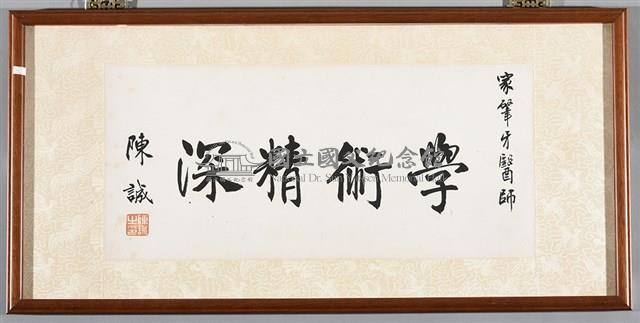 家肇牙醫師
學術精深
陳誠
國立國父紀念館
National Dr. Sun Yat-sen Memorial Hall